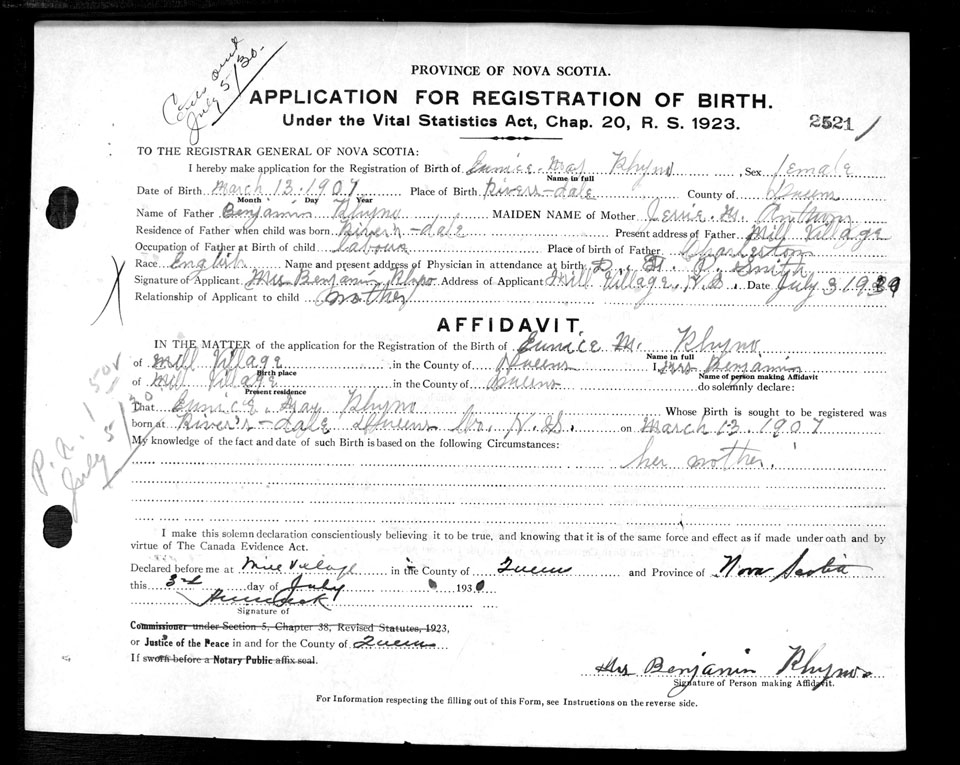 Cards out
July 5/30.
PROVINCE OF NOVA SCOTIA.
APPLICATION FOR REGISTRATION OF BIRTH.
Under the Vital Statistics Act, Chap. 20, R. S. 1923.
2521
TO THE REGISTRAR GENERAL OF NOVA SCOTIA:
I hereby make application for the Registration of Birth of Eunice May Rhyno, Sex female
Name in full
Date of Birth March 13. 1907 Place of Birth Rivers-dale County of Queens
Month Day Year
Name of Father Benjamin Rhyno MAIDEN NAME of Mother M. Anthony
Residence of Father when child was born River's-dale Present address of Father Mill Village
Occupation of Father at Birth of child labour Place of birth of Father Charleston
Race English Name and present address of Physician in attendance at birth Smith
Signature of Applicant Mrs Benjamin Rhyno Address of Applicant Mill Village, N.S. Date July 3 1930
Relationship of Applicant to child mother
AFFIDAVIT.
IN THE MATTER of the application for the Registration of the Birth of Eunice M. Rhyno
Name in full
of Mill Village in the County of Queens I Mrs Benjamin
Birth place Name of person making Affidavit
of Mill Village in the County of Queens do solemnly declare:
Present residence
That Eunice May Rhyno Whose Birth is sought to be registered was
born at River's-dale Queens Co. N.S. on March 13. 1907
My knowledge of the fact and date of such Birth is based on the following Circumstances:
her mother.
P.A. 1.50
July 5/30
I make this solemn declaration conscientiously believing it to be true, and knowing that it is of the same force and effect as if made under oath and by
virtue of The Canada Evidence Act.
Declared before me at Mill Village in the County of Queens and Province of Nova Scotia
this 3rd day of July 1930
Signature of
Commissioner under Section 5, Chapter 38, Revised Statutes, 1923,
or Justice of the Peace in and for the County of Queens
If sworn before a Notary Public affix seal.
Mrs Benjamin Rhyno
Signature of Person making Affidavit.
For Information respecting the filling out of this Form, see Instructions on the reverse side.